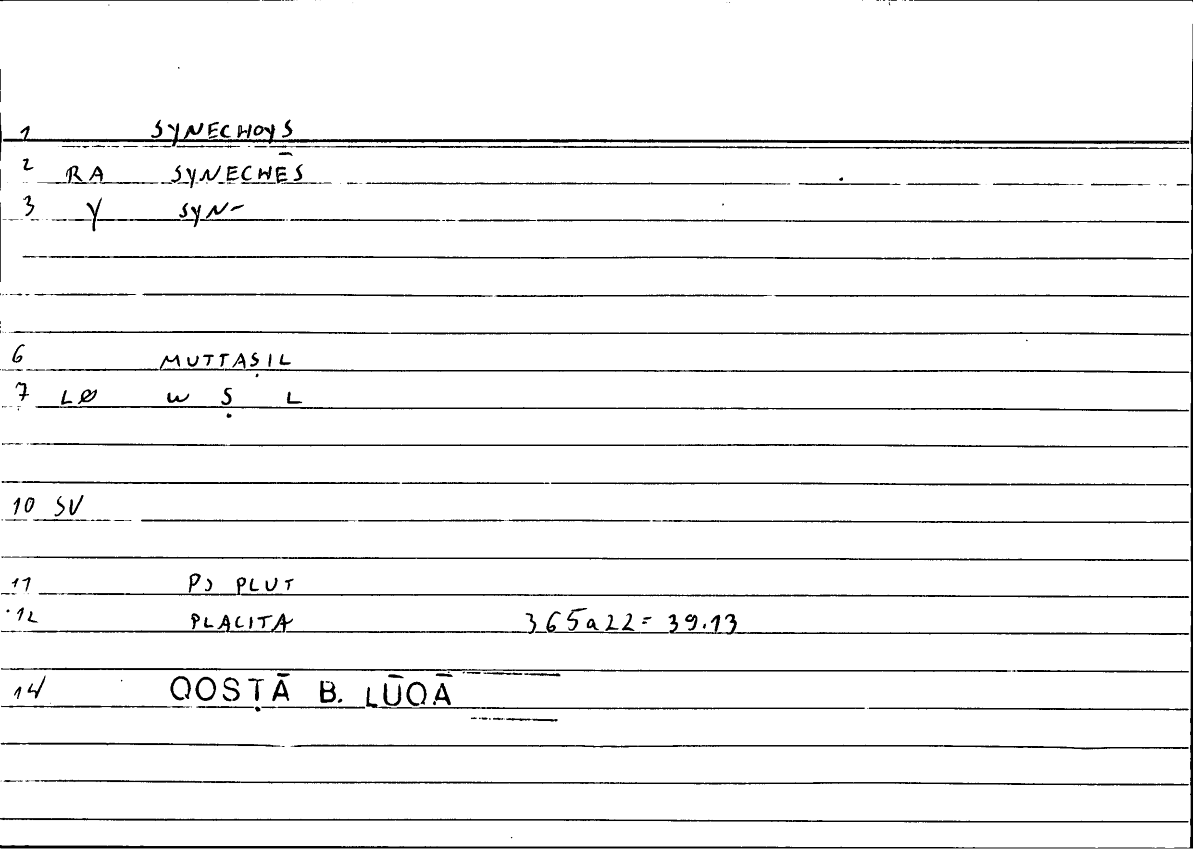 1 SYNECHOYS
2 RA SYNECHĒS
3 Y SYN-
6 MUTTAṢIL
7 LØ W Ṣ L
10 SV
11 PS PLUT
12 PLACITA 365a22= 39.13
14 QOSṬĀ B. LŪQĀ